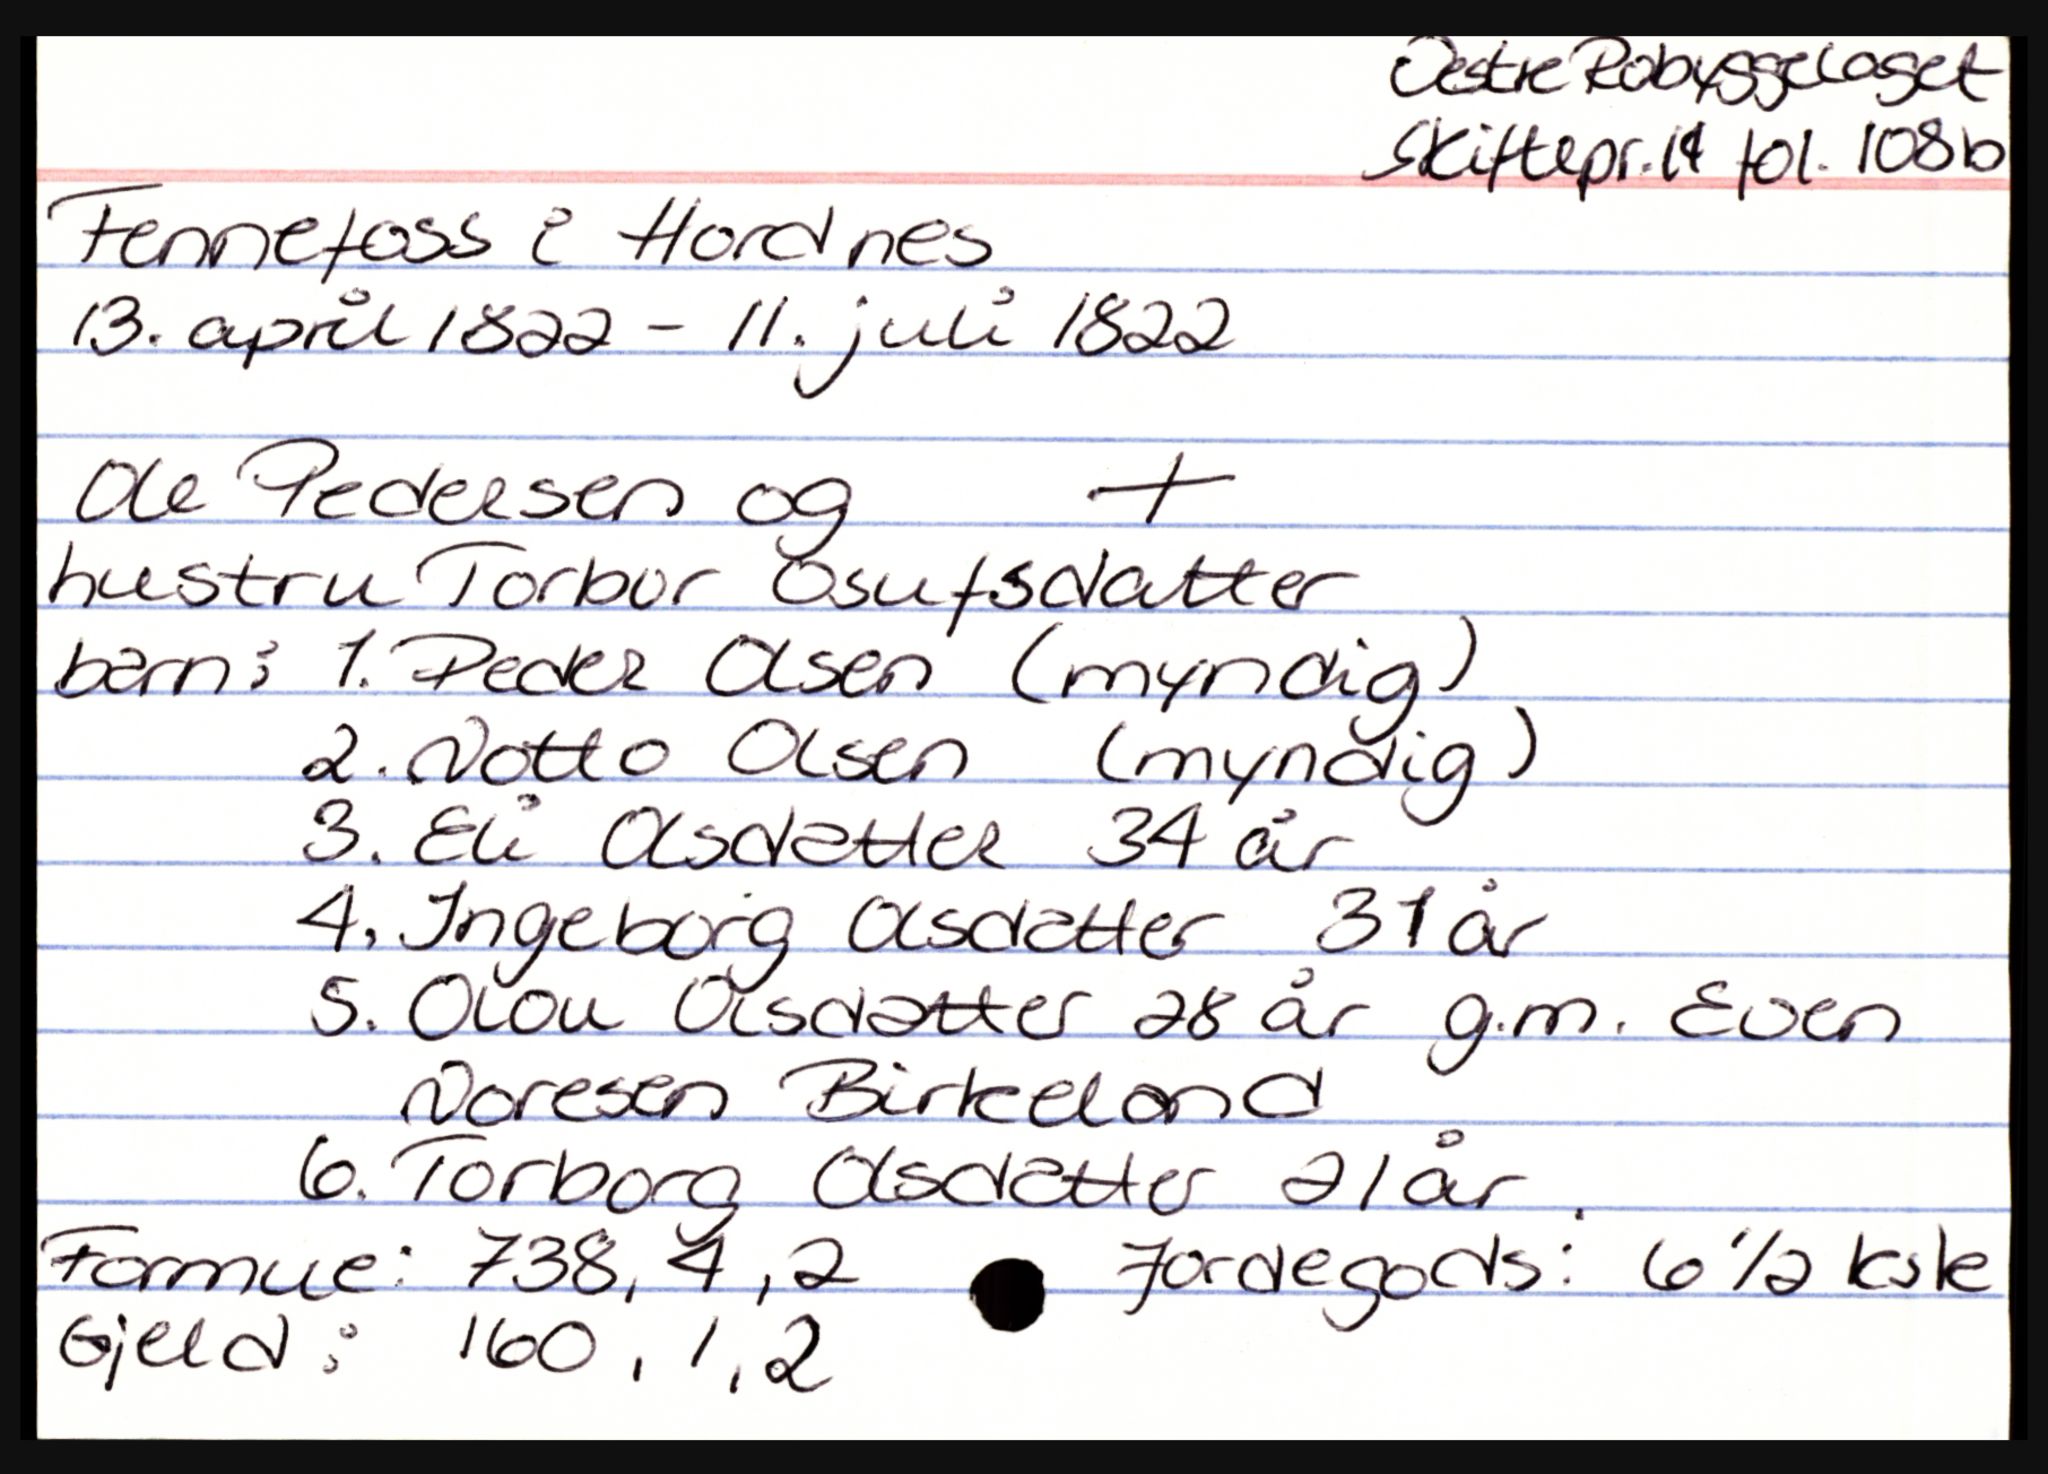 Vestre Robyggelaget
Skiftepr. 14 fol. 108b
Fennefoss i Hordnes
13. april 1822 - 11. juli 1822
Ole Pedersen og +
hustru Torbor Osufsdatter
barn: 1. Peder Olsen (myndig)
2. Notto Olsen (myndig)
3. Eli Olsdatter 34 år
4. Ingeborg Olsdatter 31 år
5. Olou Olsdatter 28 år g.m. Even
Noresen Birkeland
6. Torborg Olsdatter 21 år
Formue: 738, 4, 2 Jordegods: 6 1/2 kskr
Gjeld: 160, 1, 2